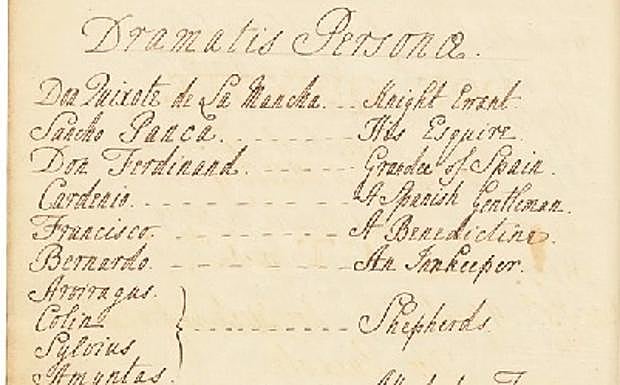 Dramatis Personæ.
Don Quixote de La Mancha. -- Knight Errant
Sancho Panca. ---- His Esquire
Don Ferdinand. ---- Grandee of Spain.
Cardenio. -------- A Spanish Gentleman.
Francisco. ------- A Benedictine.
Bernardo. ------- An Innkeeper.
Arviragus.
Colin
Sylvius } -------- Shepherds.
Amyntas.